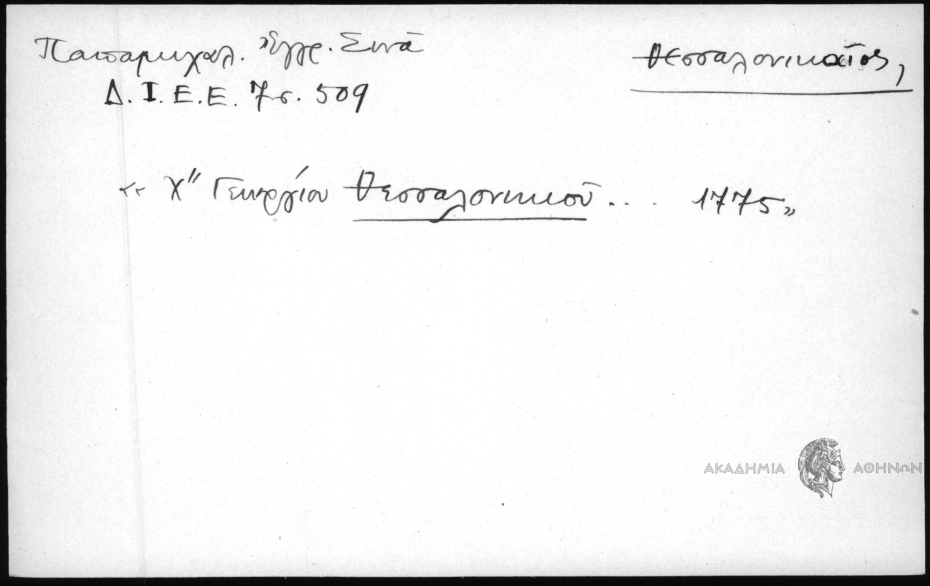 Παπαμιχαλ. Ἔγγρ. Σινᾶ
Θεσσαλονικαῖος,
Δ.Ι.Ε.Ε. 7 σ. 509
« Χ" Γεωργίου Θεσσαλονικιοῦ... 1775»
ΑΚΑΔΗΜΙΑ ΑΘΗΝΩΝ